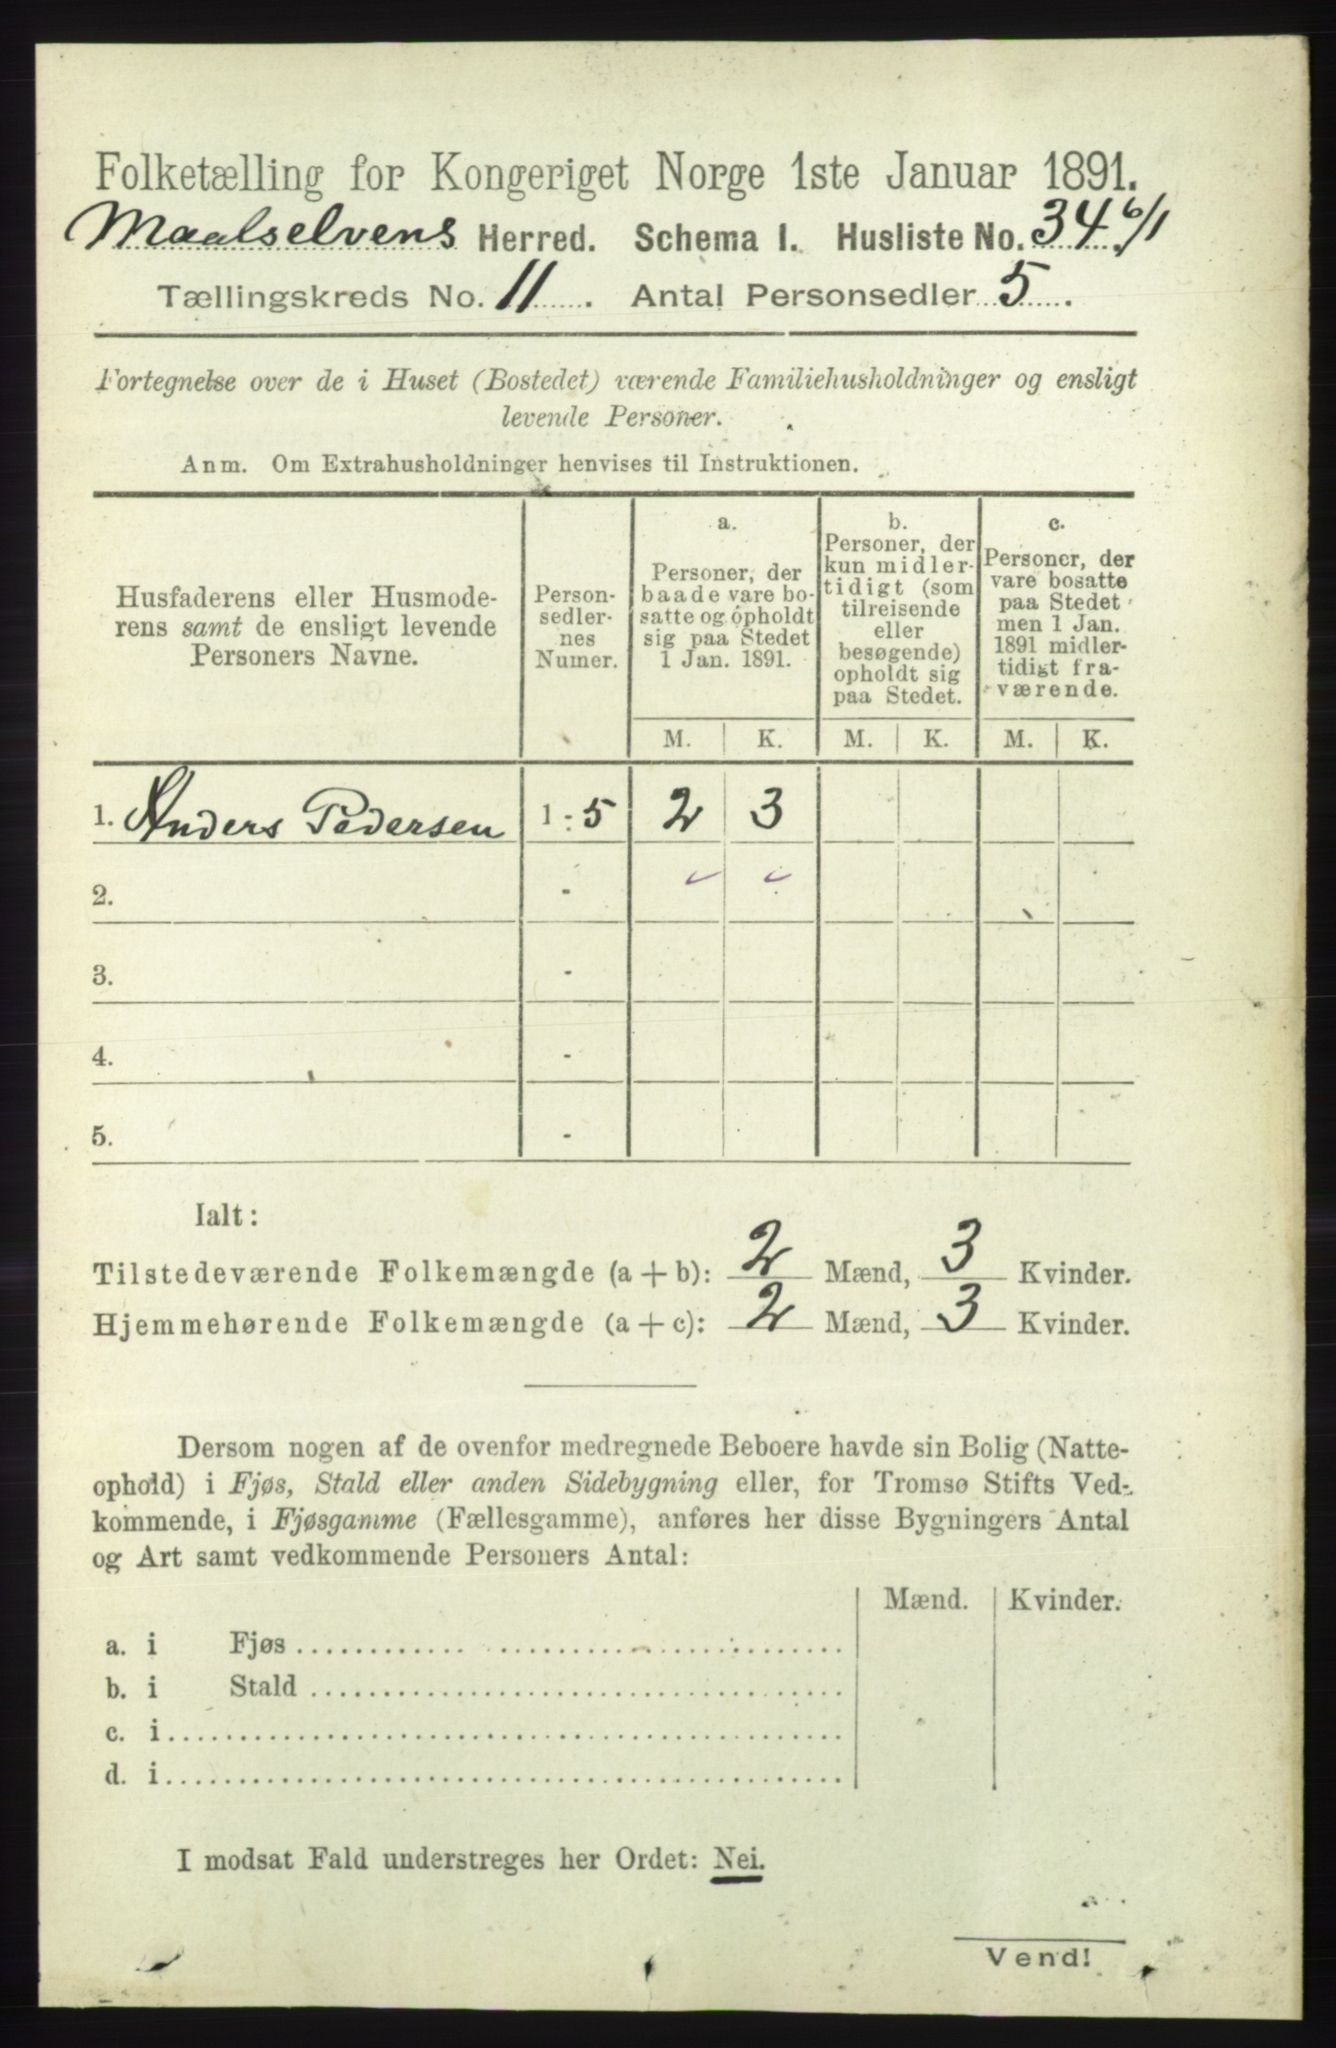 Folketælling for Kongeriget Norge 1ste Januar 1891.
Maalselvens Herred. Schema I. Husliste No. 34 6/1
Tællingskreds No. 11. Antal Personsedler 5.
Fortegnelse over de i Huset (Bostedet) værende Familiehusholdninger og ensligt
levende Personer.
Anm. Om Extrahusholdninger henvises til Instruktionen.
Husfaderens eller Husmode-
rens samt de ensligt levende
Personers Navne.
Person-
sedler-
nes
Numer.
a.
Personer, der
baade vare bo-
satte og opholdt
sig paa Stedet
1 Jan. 1891.
b.
Personer, der
kun midler-
tidigt (som
tilreisende
eller
besøgende)
opholdt sig
paa Stedet.
c.
Personer, der
vare bosatte
paa Stedet
men 1 Jan.
1891 midler-
tidigt fra-
værende.
M. K. M. K. M. K.
1. Anders Pedersen 1-5 2 3
2. -
3. -
4. -
5. -
Ialt:
Tilstedeværende Folkemængde (a + b): 2 Mænd, 3 Kvinder.
Hjemmehørende Folkemængde (a + c): 2 Mænd, 3 Kvinder.
Dersom nogen af de ovenfor medregnede Beboere havde sin Bolig (Natte-
ophold) i Fjøs, Stald eller anden Sidebygning eller, for Tromsø Stifts Ved-
kommende, i Fjøsgamme (Fællesgamme), anføres her disse Bygningers Antal
og Art samt vedkommende Personers Antal:
Mænd. Kvinder.
a. i Fjøs
b. i Stald
c. i
d. i
I modsat Fald understreges her Ordet: Nei.
Vend!